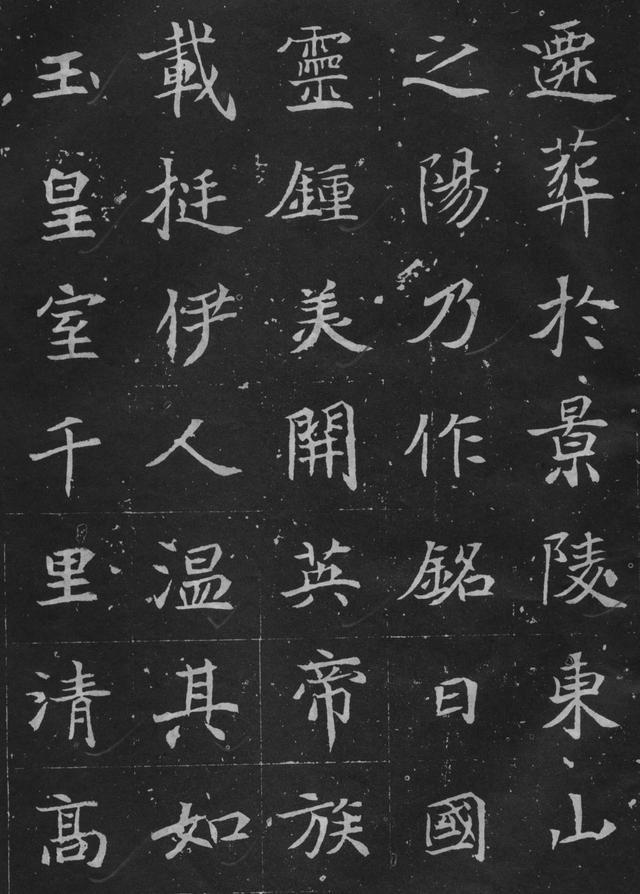 遷葬於景陵東山
之陽乃作銘曰國
靈鍾美開英帝族
載挺伊人温其如
玉皇室千里清高